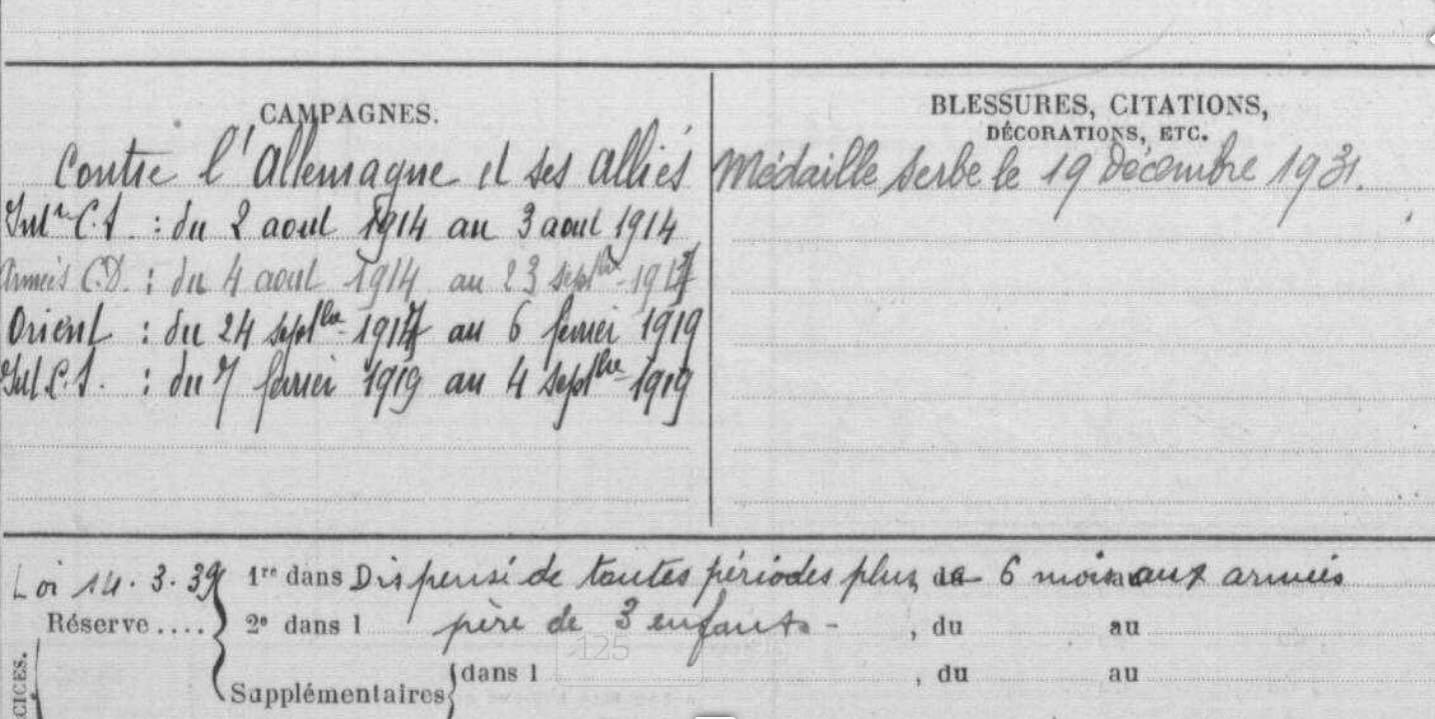 CAMPAGNES.
Contre l'Allemagne et ses alliés
Intr C.S. : du 2 aout 1914 au 3 aout 1914
Armées C.D. : du 4 aout 1914 au 23 septbre 1917
Orient : du 24 septbre 1917 au 6 fevrier 1919
Int. C.S. : du 7 fevrier 1919 au 4 septbre 1919
BLESSURES, CITATIONS,
DÉCORATIONS, ETC.
Médaille Serbe le 19 Décembre 1931.
Loi 14.3.39 1re dans Dispensé de toutes périodes plus de 6 mois aux armées
Réserve.... 2e dans l père de 3 enfants - , du au
125
Supplémentaires dans l , du au
CICES.